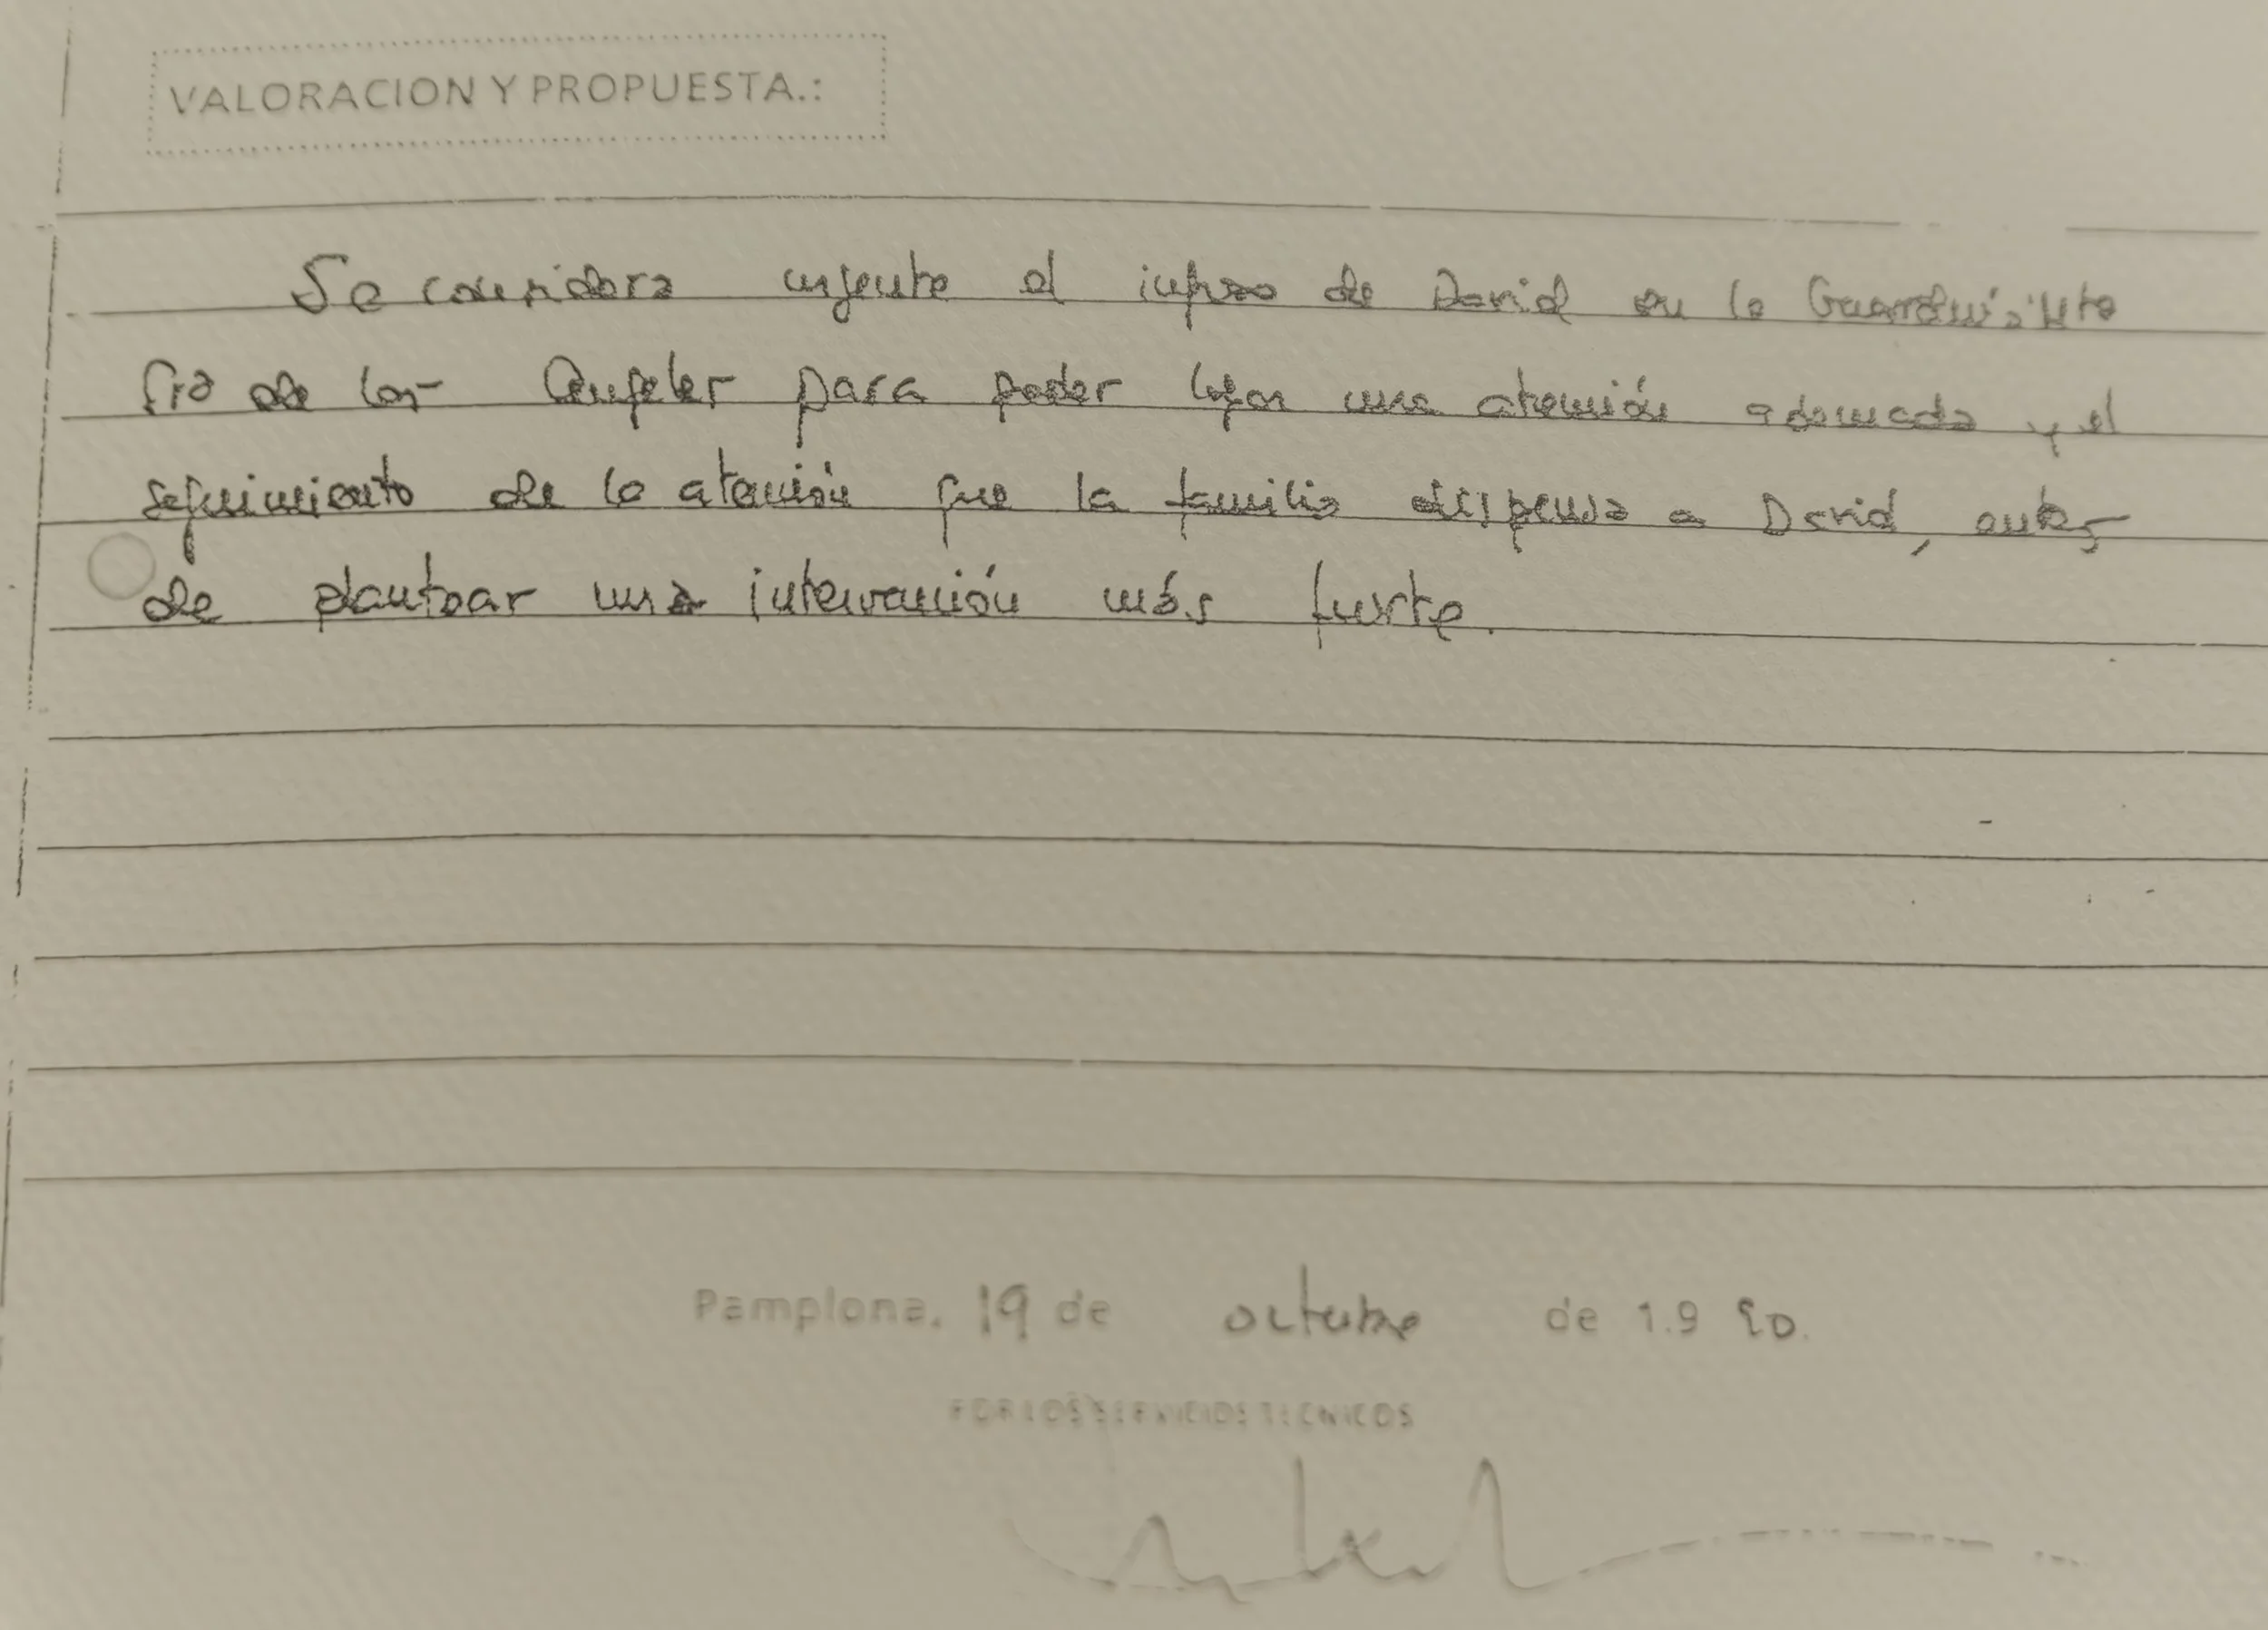 VALORACION Y PROPUESTA.:
Se considera urgente el ingreso de David en la Guardería Ntra
Sra de los Angeles para poder lograr una atención adecuada y el
seguimiento de la atención que la familia dispensa a David, antes
de plantear una intervención más fuerte.
Pamplona, 19 de octubre de 1.9 90.
POR LOS SERVICIOS TECNICOS